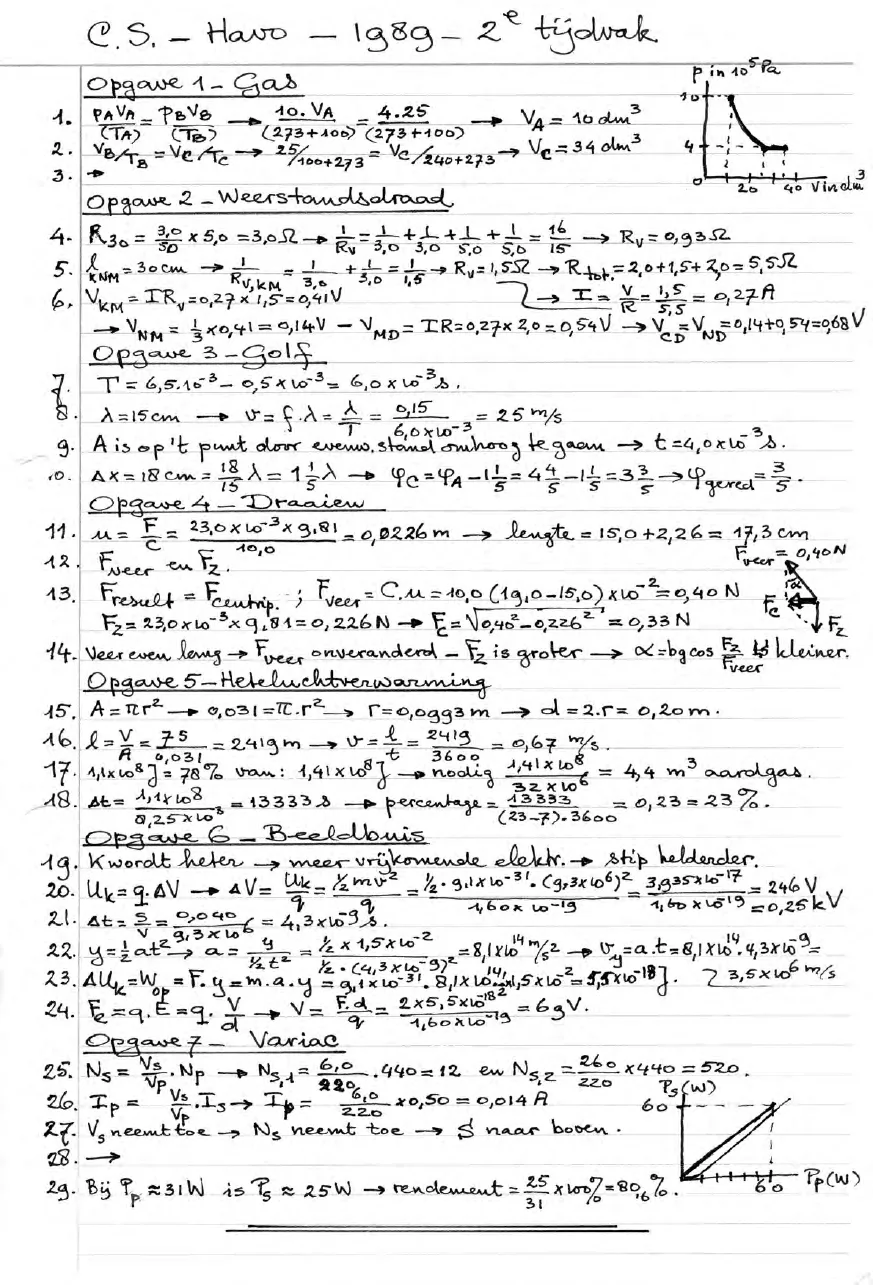 C.S. – Havo – 1989 – 2e tijdvak
Opgave 1 – Gas
p in 10⁵ Pa
10
4
0
20
40
V in dm³
1. pAVA/(TA) = pBVB/(TB) → 10.VA/(273+100) = 4.25/(273+100) → VA = 10 dm³
2. VB/TB = VC/TC → 25/100+273 = VC/240+273 → VC = 34 dm³
3. →
Opgave 2 – Weerstandsdraad
4. R30 = 3,0/5,0 × 5,0 = 3,0 Ω → 1/Rv = 1/3,0 + 1/3,0 + 1/5,0 + 1/5,0 = 16/15 → Rv = 0,93 Ω
5. lKNM = 30 cm → 1/Rv,KM = 1/3,0 + 1/3,0 = 1/1,5 → Rv = 1,5 Ω → Rtot. = 2,0+1,5+2,0 = 5,5 Ω
→ I = V/R = 1,5/5,5 = 0,27 A
6. VKM = IRv = 0,27 × 1,5 = 0,41 V
→ VNM = 1/3 × 0,41 = 0,14 V – VMD = IR = 0,27 × 2,0 = 0,54 V → VCD = VND = 0,14+0,54 = 0,68 V
Opgave 3 – Golf
7. T = 6,5.10⁻³ – 0,5 × 10⁻³ = 6,0 × 10⁻³ s.
8. λ = 15 cm → v = f.λ = λ/T = 0,15/6,0×10⁻³ = 25 m/s
9. A is op 't punt door evenw. stand omhoog te gaan → t = 4,0×10⁻³ s.
10. Δx = 18 cm = 18/15 λ = 1 1/5 λ → φC = φA – 1 1/5 = 4 4/5 – 1 1/5 = 3 3/5 → φgered = 3/5.
Opgave 4 – Draaien
11. u = F/C = 23,0×10⁻³ × 9,81/10,0 = 0,0226 m → lengte = 15,0 + 2,26 = 17,3 cm
12. Fveer en Fz.
Fveer = 0,40 N
α
Fc
Fz
13. Fresult = Fcentrip. ; Fveer = C.u = 10,0 (19,0–15,0) × 10⁻² = 0,40 N
Fz = 23,0×10⁻³ × 9,81 = 0,226 N → Fc = √0,40² – 0,226² = 0,33 N
14. Veer even lang → Fveer onveranderd – Fz is groter → α = bgcos Fz/Fveer is kleiner.
Opgave 5 – Heteluchtverwarming
15. A = πr² → 0,031 = π.r² → r = 0,0993 m → d = 2.r = 0,20 m.
16. l = V/A = 75/0,031 = 2419 m → v = l/t = 2419/3600 = 0,67 m/s.
17. 1,1×10⁸ J = 78% van: 1,41×10⁸ J → nodig 1,41×10⁸/32×10⁶ = 4,4 m³ aardgas.
18. Δt = 1,1×10⁸/0,25×10⁸ = 13333 s → percentage = 13333/(23–7).3600 = 0,23 = 23%.
Opgave 6 – Beeldbuis
19. K wordt heter → meer vrijkomende elektr. → stip helderder.
20. Uk = q.ΔV → ΔV = Uk/q = ½mv²/q = ½.9,1×10⁻³¹.(9,3×10⁶)²/1,60×10⁻¹⁹ = 3,935×10⁻¹⁷/1,60×10⁻¹⁹ = 246 V = 0,25 kV
21. Δt = s/v = 0,040/9,3×10⁶ = 4,3×10⁻⁹ s.
22. y = ½at² → a = y/½t² = ½ × 1,5×10⁻²/½.(4,3×10⁻⁹)² = 8,1×10¹⁴ m/s² → vy = a.t = 8,1×10¹⁴.4,3×10⁻⁹ = 3,5×10⁶ m/s
23. ΔUk = Wop = F.y = m.a.y = 9,1×10⁻³¹.8,1×10¹⁴.½.1,5×10⁻² = 5,5×10⁻¹⁸ J.
24. Fe = q.E = q.V/d → V = F.d/q = 2×5,5×10⁻¹⁸/1,60×10⁻¹⁹ = 69 V.
Opgave 7 – Variac
25. Ns = Vs/Vp.Np → Ns,1 = 6,0/220.440 = 12 en Ns,2 = 260/220 × 440 = 520.
26. Ip = Vs/Vp.Is → Ip = 6,0/220 × 0,50 = 0,014 A
27. Vs neemt toe → Ns neemt toe → S naar boven.
28. →
29. Bij Pp ≈ 31 W is Ps ≈ 25 W → rendement = 25/31 × 100% = 80,6%.
Ps (W)
60
60
Pp (W)